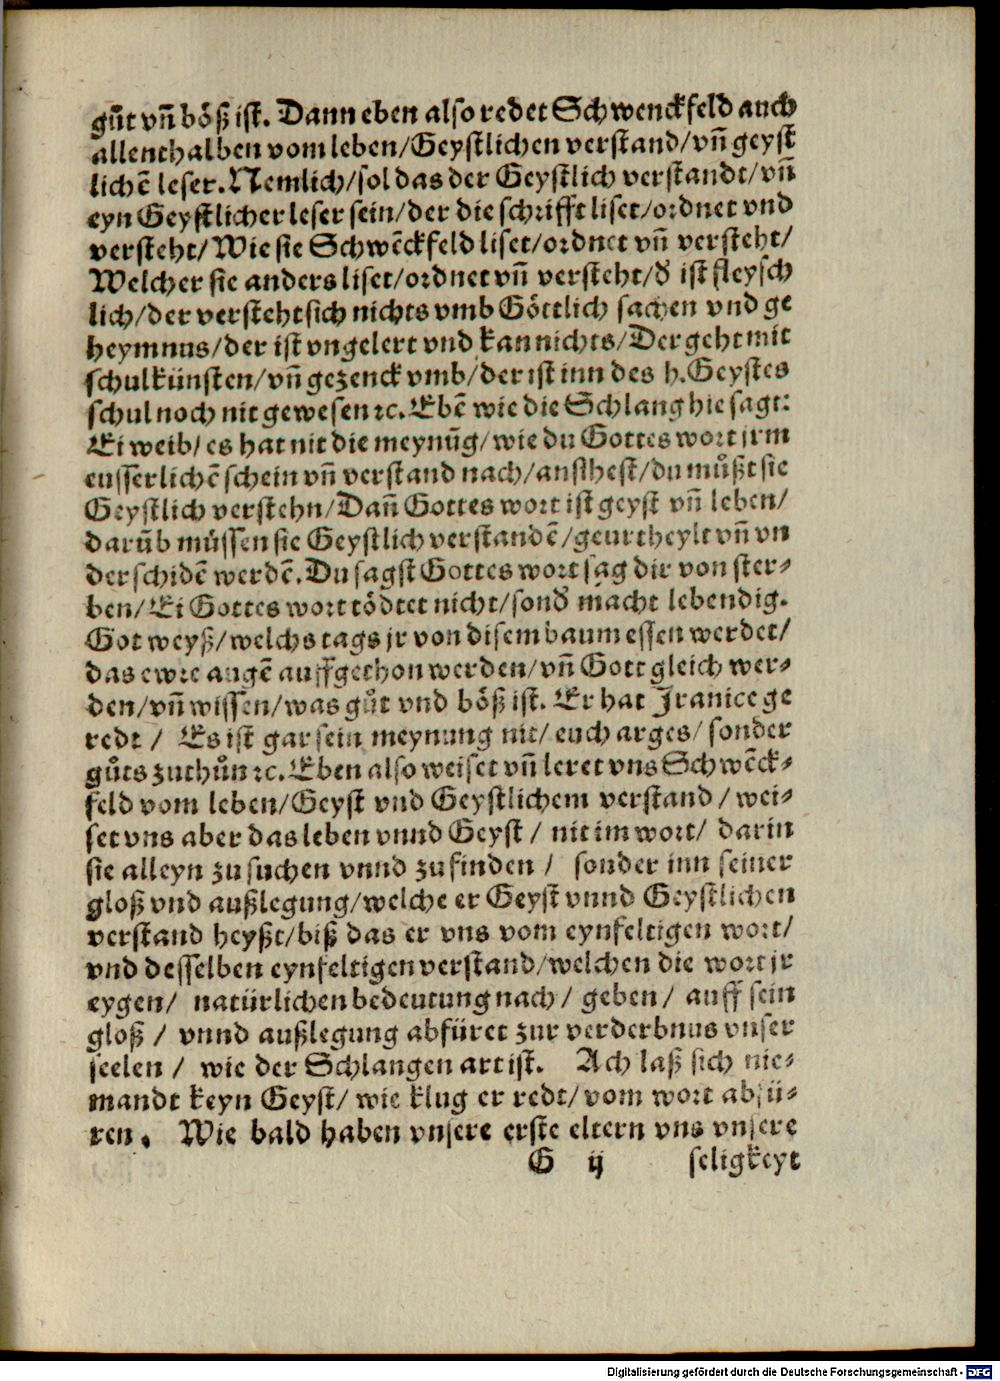 gůt vñ böß ist. Dann eben also redet Schwenckfeld auch
allenthalben vom leben/Geystlichen verstand/vñ geyst
lichẽ leser. Nemlich/sol das der Geystlich verstandt/vñ
eyn Geystlicher leser sein/der die schrifft liset/ordnet vnd
versteht/Wie sie Schwẽckfeld liset/ordnet vñ versteht/
Welcher sie anders liset/ordnet vñ versteht/d̕ ist fleysch
lich/der versteht sich nichts vmb Göttlich sachen vnd ge
heymnus/der ist vngelert vnd kan nichts/Der geht mit
schulkünsten/vñ gezenck vmb/der ist inn des h. Geystes
schul noch nit gewesen ꝛc. Ebẽ wie die Schlang hie sagt:
Ei weib/es hat nit die meynũg/wie du Gottes wort jrm
eusserlichẽ schein vñ verstand nach/ansihest/du můßt sie
Geystlich verstehn/Dañ Gottes wort ist geyst vñ leben/
darũb müssen sie Geystlich verstandẽ/geurtheylt vñ vn
derschidẽ werdẽ. Du sagst Gottes wort sag dir von ster⸗
ben/Ei Gottes wort tödtet nicht/sond̕ macht lebendig.
Got weyß/welchs tags jr von disem baum essen werdet/
das ewre augẽ auffgethon werden/vñ Gott gleich wer⸗
den/vñ wissen/was gůt vnd böß ist. Er hat Jranice ge
redt / Es ist gar sein meynung nit/euch arges/sonder
gůts zuthůn ꝛc. Eben also weiset vñ leret vns Schwẽck⸗
feld vom leben/Geyst vnd Geystlichem verstand/wei⸗
set vns aber das leben vnnd Geyst / nit im wort/ darin
sie alleyn zu suchen vnnd zu finden / sonder inn seiner
gloß vnd außlegung/welche er Geyst vnnd Geystlichen
verstand heyßt/biß das er vns vom eynfeltigen wort/
vnd desselben eynfeltigen verstand/welchen die wort jr
eygen/ natürlichen bedeutung nach/ geben/ auff sein
gloß / vnnd außlegung abfüret zur verderbnus vnser
seelen / wie der Schlangen art ist. Ach laß sich nie⸗
mandt keyn Geyst/ wie klug er redt/vom wort abfü⸗
ren. Wie bald haben vnsere erste eltern vns vnsere
G ij seligkeyt
Digitalisierung gefördert durch die Deutsche Forschungsgemeinschaft - DFG